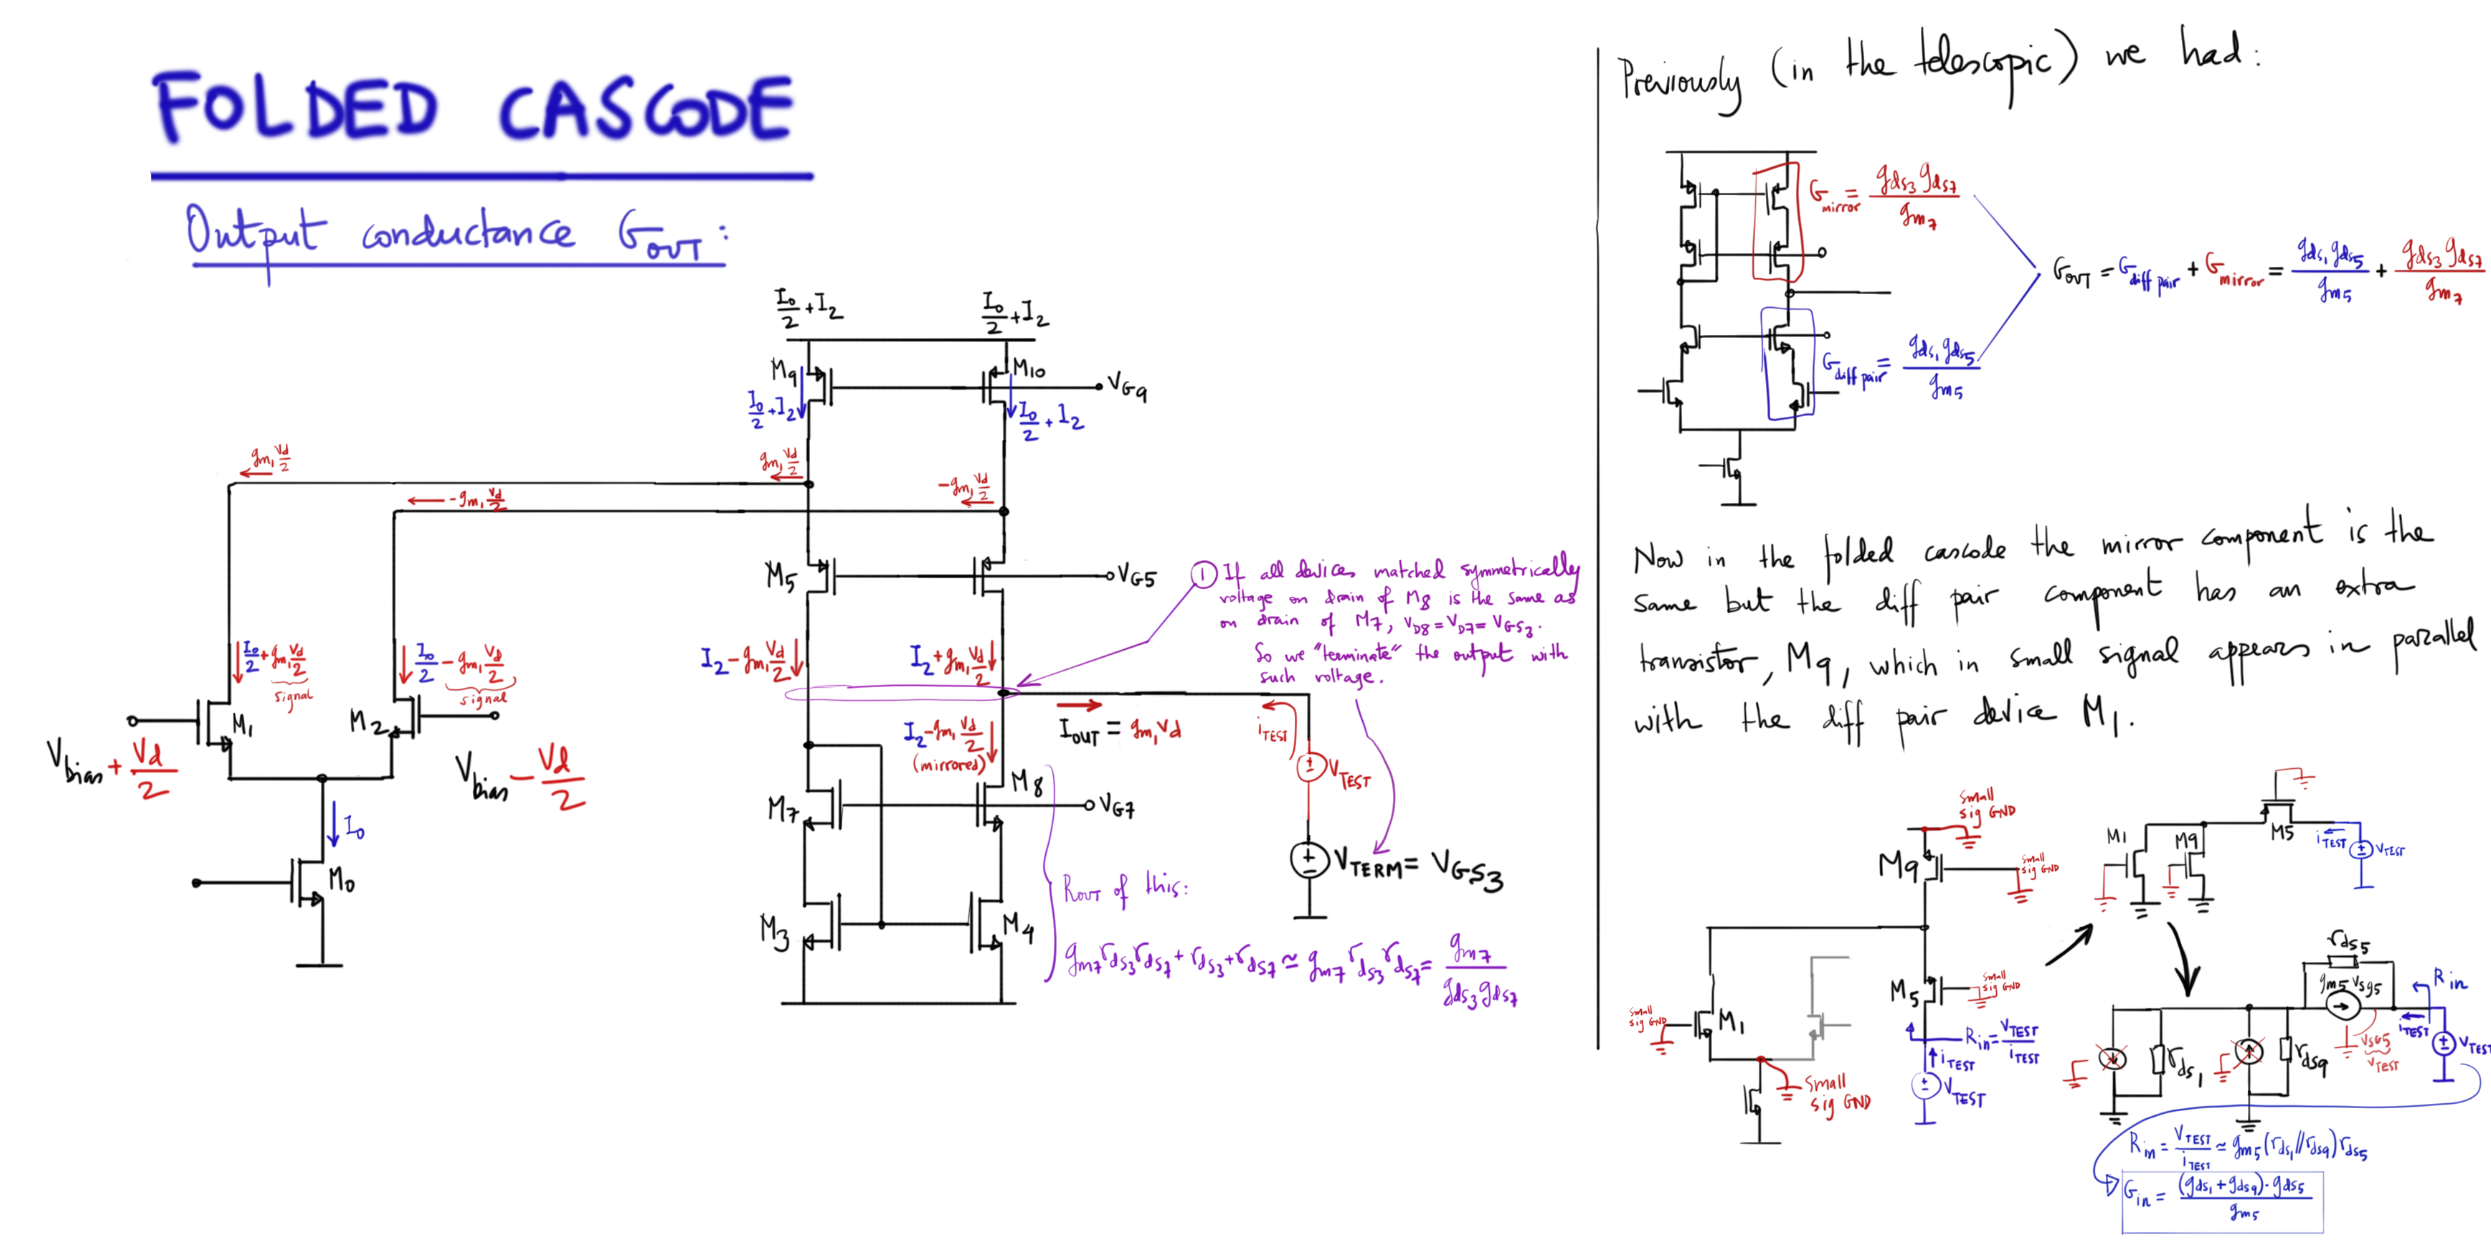 FOLDED CASCODE
Output conductance G_OUT:
I₀/2 + I₂
I₀/2 + I₂
M9
M10
V_G9
I₀/2 + I₂
I₀/2 + I₂
gm₁ Vd/2
gm₁ Vd/2
-gm₁ Vd/2
-gm₁ Vd/2
M5
V_G5
① If all devices matched symmetrically
voltage on drain of M8 is the same as
on drain of M7, V_D8 = V_D7 = V_GS3.
So we "terminate" the output with
such voltage.
I₀/2 + gm₁ Vd/2
signal
I₀/2 - gm₁ Vd/2
signal
I₂ - gm₁ Vd/2
I₂ + gm₁ Vd/2
M1
M2
V_bias + Vd/2
V_bias - Vd/2
I₀
M0
I₂ - gm₁ Vd/2
(mirrored)
I_OUT = gm₁ Vd
i_TEST
V_TEST
M7
M8
V_G7
V_TERM = V_GS3
M3
M4
R_OUT of this:
gm7 rds3 rds7 + rds3 + rds7 ≃ gm7 rds3 rds7 = gm7 / gds3 gds7
Previously (in the telescopic) we had:
G_mirror = gds3 gds7 / gm7
G_diff pair = gds1 gds5 / gm5
G_OUT = G_diff pair + G_mirror = gds1 gds5 / gm5 + gds3 gds7 / gm7
Now in the folded cascode the mirror component is the
same but the diff pair component has an extra
transistor, M9, which in small signal appears in parallel
with the diff pair device M1.
Small
sig GND
M9
Small
sig GND
M5
Small
sig GND
Small
sig GND
M1
R_in = V_TEST / i_TEST
i_TEST
V_TEST
Small
sig GND
M1
M9
M5
i_TEST
V_TEST
rds5
gm5 vsg5
R_in
i_TEST
V_TEST
VSG5
V_TEST
rds1
rds9
R_in = V_TEST / i_TEST ≃ gm5 (rds1 // rds9) rds5
G_in = (gds1 + gds9) · gds5 / gm5